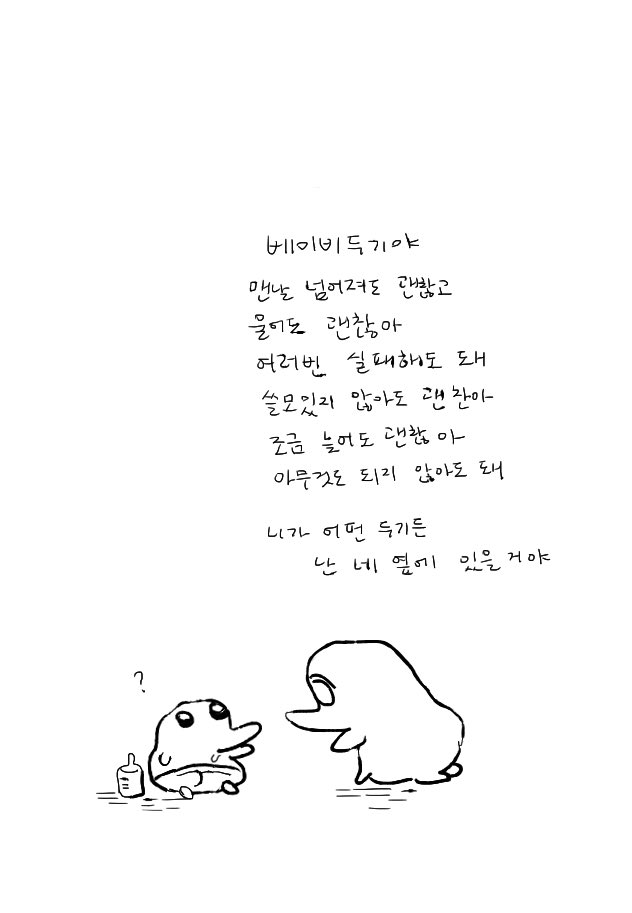 베이비두기야
맨날 넘어져도 괜찮고
울어도 괜찮아
여러번 실패해도 돼
쓸모있지 않아도 괜찬아
조금 늦어도 괜찮아
아무것도 되지 않아도 돼
니가 어떤 두기든
난 네 옆에 있을거야
?